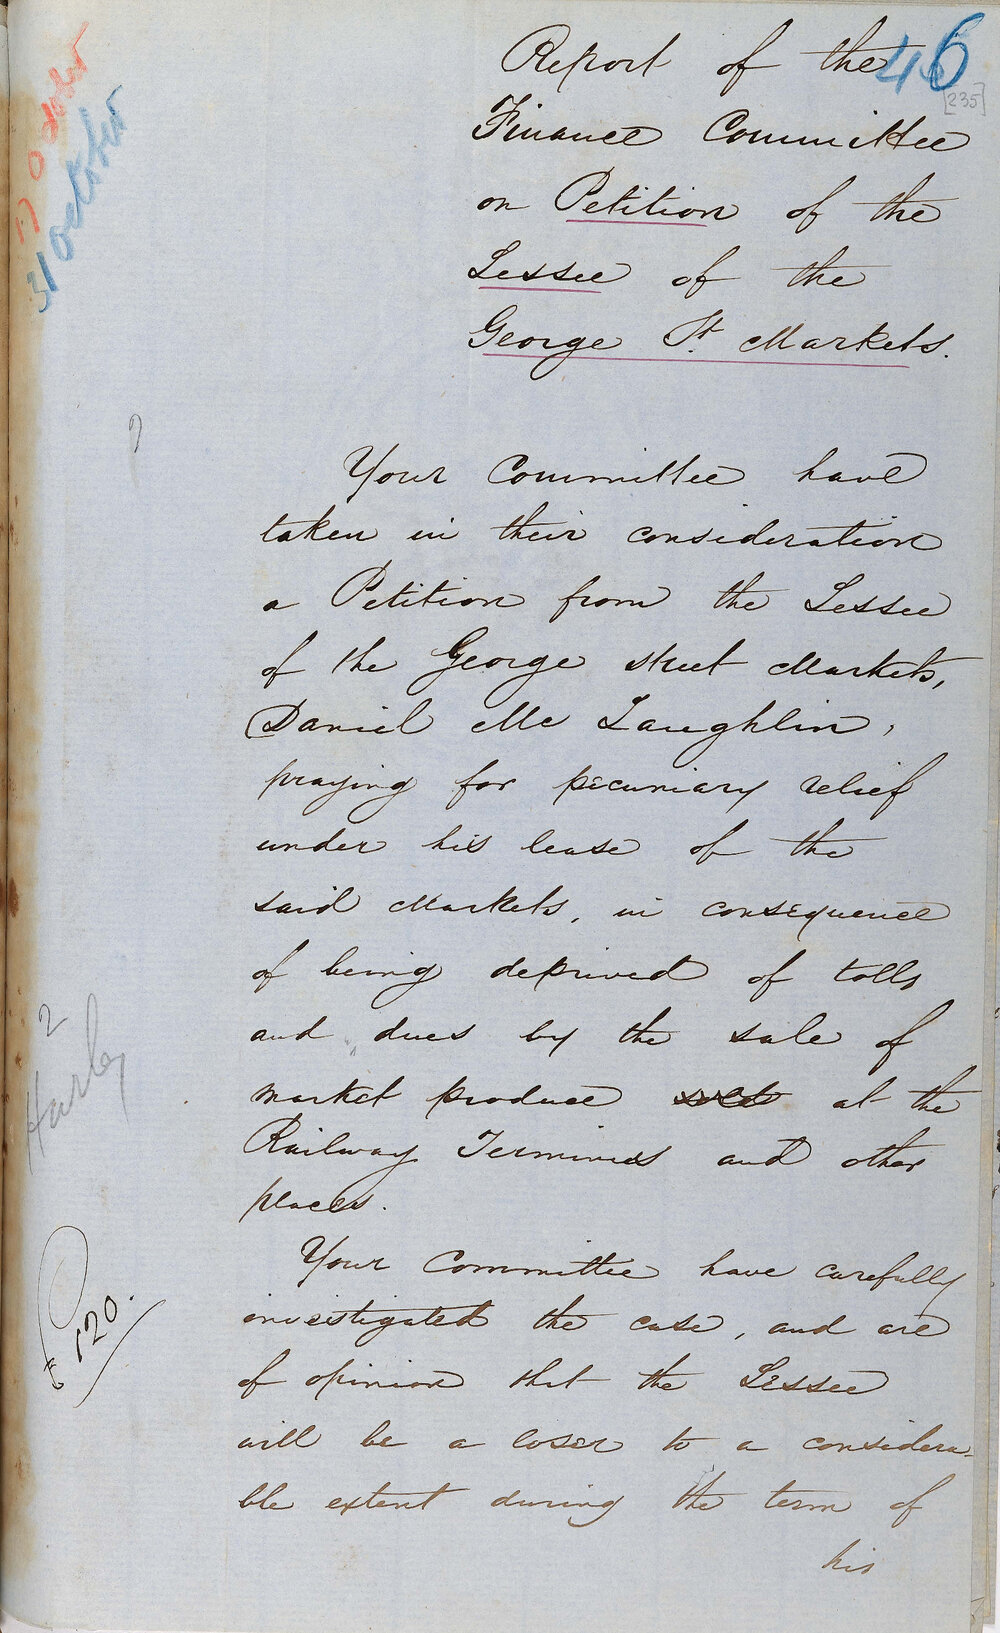 Report of the
46
[235]
Finance Committee
on Petition of the
Lessee of the
George St. Markets.
17 October
31 October
Your Committee have
taken in their consideration
a Petition from the Lessee
of the George street Markets,
Daniel Mc Laughlin,
praying for pecuniary relief
under his lease of the
said Markets, in consequence
of being deprived of tolls
and dues by the sale of
market produce sold at the
Railway Terminus and other
places.
Your Committee have carefully
investigated the case, and are
of opinion that the Lessee
will be a loser to a considera-
ble extent during the term of
his
2
Hurley
120.